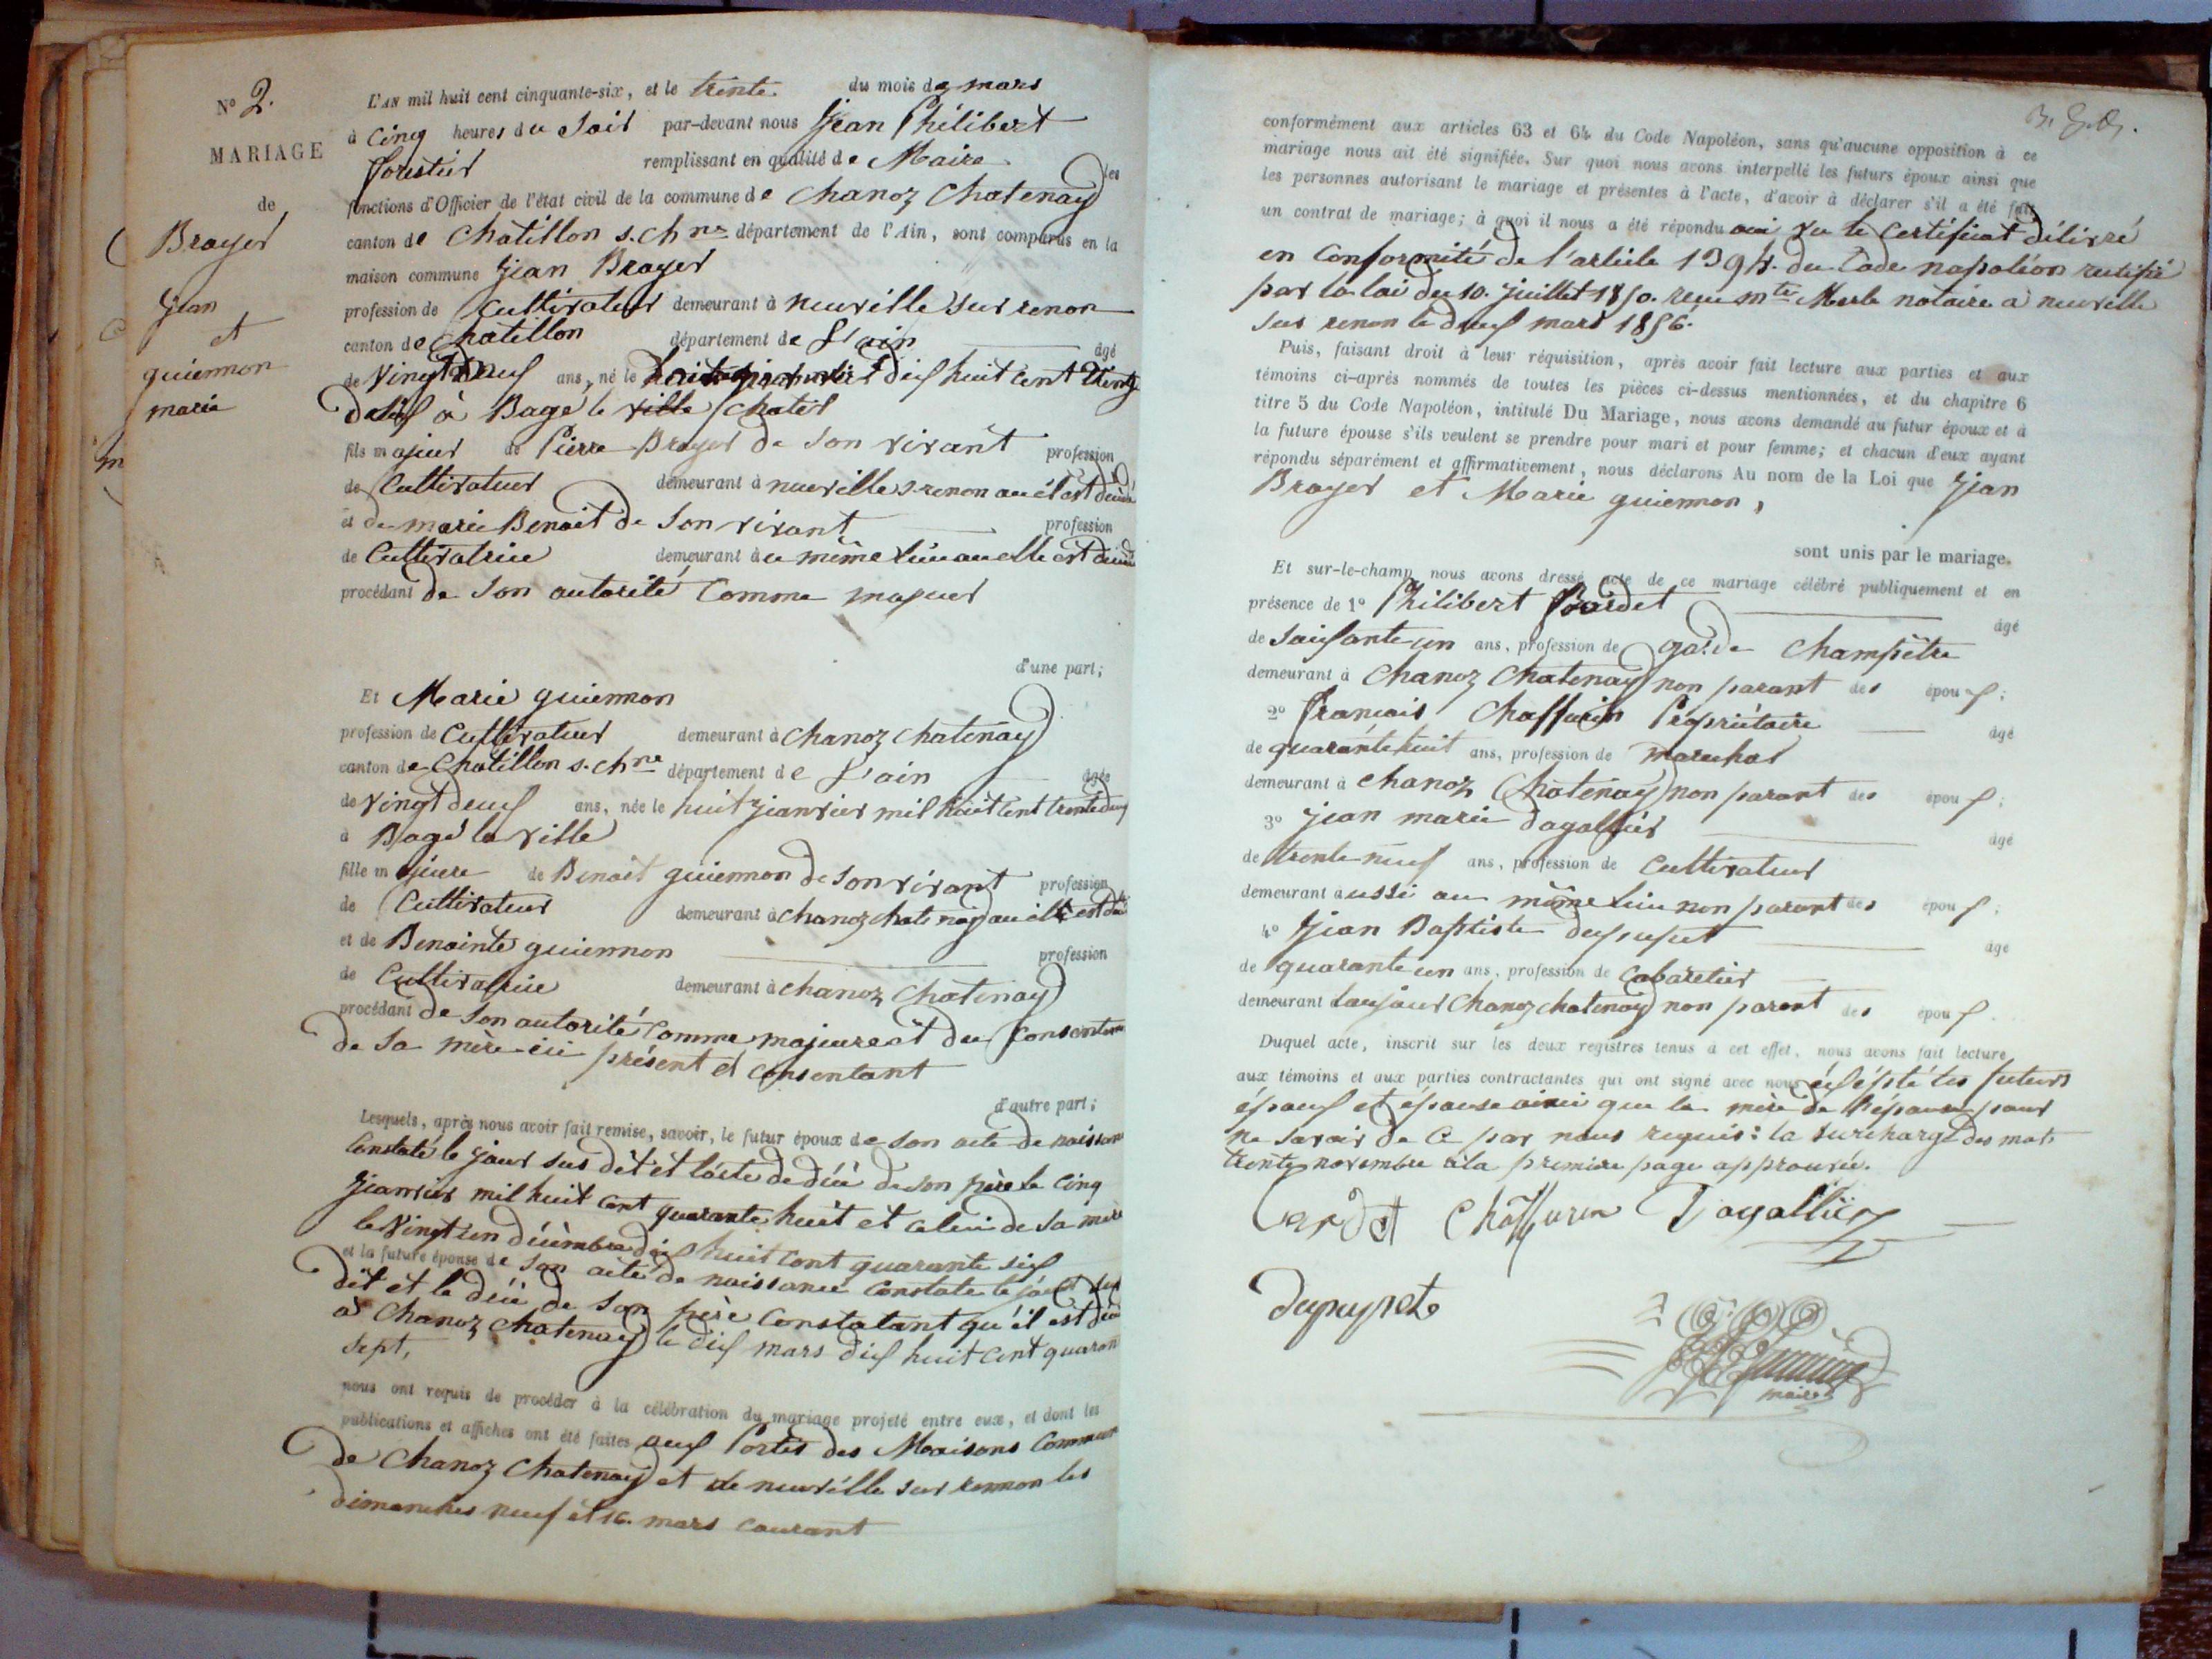 N° 2.
MARIAGE
de
Broyer
Jean
et
guiennon
marie
L'AN mil huit cent cinquante-six, et le trente du mois de mars
à cinq heures du Soir par-devant nous Jean Philibert
forestier remplissant en qualité de Maire les
fonctions d'Officier de l'état civil de la commune de Chanoz Chatenay
canton de Chatillon s. chne département de l'Ain, sont comparus en la
maison commune Jean Broyer
profession de Cultivateur demeurant à neuville sur renon
canton de chatillon département de L'ain âgé
de Vingt ans, né le dix huit cent trente
à Bagé le ville chatel
fils majeur de Pierre Broyer de son vivant profession
de Cultivateur demeurant à neuville s. renon où il est décédé
et de marie Benoit de son vivant profession
de Cultivatrice demeurant au même lieu ou elle est
procédant de son autorité Comme majeur
d'une part;
Et Marie guiennon
profession de Cultivateur demeurant à chanoz chatenay
canton de Chatillon s. chne département de L'ain âgée
de vingt deux ans, née le huit janvier mil huit cent trente
à Bagé la ville
fille majeure de Benoit guiennon de son vivant profession
de Cultivateur demeurant à chanoz chatenay ou il est
et de Benointe guiennon profession
de Cultivatrice demeurant à chanoz chatenay
procédant de son autorité Comme majeure et du
de sa mère ici présent et consentant
d'autre part;
Lesquels, après nous avoir fait remise, savoir, le futur époux de son acte de
Constaté le jour sus dit et l'acte de décé de son père le cinq
janvier mil huit cent quarante huit et celui de sa mère
le vingt un décembre dix huit cent quarante six
et la future épouse de son acte de naissance constaté le jour sus
dit et le décé de son père constatant qu'il est
à Chanoz chatenay le dix mars dix huit cent
sept,
nous ont requis de procéder à la célébration du mariage projeté entre eux, et dont les
publications et affiches ont été faites aux Portes des Maisons
de Chanoz Chatenay et de neuville sur rennon les
dimanches neuf et 16. mars courant
conformément aux articles 63 et 64 du Code Napoléon, sans qu'aucune opposition à ce
mariage nous ait été signifiée. Sur quoi nous avons interpellé les futurs époux ainsi que
les personnes autorisant le mariage et présentes à l'acte, d'avoir à déclarer s'il a été fait
un contrat de mariage; à quoi il nous a été répondu oui vu le certificat délivré
en conformité de l'article 1394. du Code napoléon
par la loi du 10. juillet 1850. reçu mte Merle notaire à neuville
sur renon le deux mars 1856.
Puis, faisant droit à leur réquisition, après avoir fait lecture aux parties et aux
témoins ci-après nommés de toutes les pièces ci-dessus mentionnées, et du chapitre 6
titre 5 du Code Napoléon, intitulé Du Mariage, nous avons demandé au futur époux et à
la future épouse s'ils veulent se prendre pour mari et pour femme; et chacun d'eux ayant
répondu séparément et affirmativement, nous déclarons Au nom de la Loi que Jean
Broyer et Marie guiennon,
sont unis par le mariage.
Et sur-le-champ nous avons dressé acte de ce mariage célébré publiquement et en
présence de 1° Philibert âgé
de soixante-un ans, profession de garde Champêtre
demeurant à Chanoz Chatenay non parant des époux;
2° François Chaffurin Propriétaire âgé
de quarante huit ans, profession de marechal
demeurant à chanoz Chatenay non parant des époux;
3° Jean marie dagallier âgé
de trente-neuf ans, profession de Cultivateur
demeurant aussi au même lieu non parant des époux;
4° Jean Baptiste dupupet âgé
de quarante un ans, profession de Cabaretier
demeurant toujour Chanoz chatenay non parent des époux.
Duquel acte, inscrit sur les deux registres tenus à cet effet, nous avons fait lecture
aux témoins et aux parties contractantes qui ont signé avec nous éxépté les futurs
époux et épouse ainsi que la mère de l'épouse pour
ne savoir de ce par nous requis: la surcharge des mots
trente novembre à la première page approuvée.
Chaffurin Dagallier
dupupet
maire